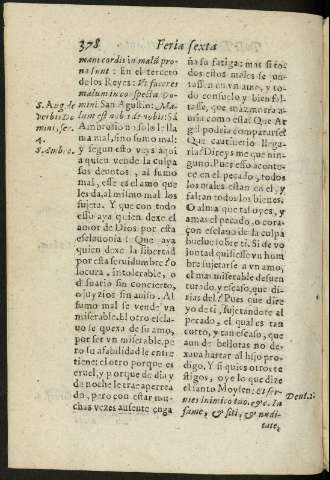 378
Feria sexta
mani cordis in malũ pro-
na sunt: En el tercero
de los Reyes: Vt faceres
malum in conspectu Do-
mini: San Agustin: Ma-
lum est nobis de nobis: Sã
Ambrosio no solo le lla
ma mal, sino sumo mal:
y segun esto veys aqui
a quien vende la culpa
sus deuotos, al sumo
mal, esse es el amo que
les da, al mismo mal los
sujeta. Y que con todo
esso aya quien dexe el
amor de Dios por esta
esclauonia! Que aya
quien dexe la libertad
por esta seruidumbre! o
locura, intolerable, o
desuario sin concierto,
o juyzios sin auiso. Al
sumo mal se vende vn
miserable. El otro escla-
uo se quexa de su amo,
por ser vn miserable, pe
ro su afabilidad le entre
tiene: el otro porque es
cruel, y porque de dia y
de noche le trae aperrea
do, pero con estar mu-
chas vezes ausente enga
S. Aug. de
verbis Do
mini, ser.
4.
S. Ambro.
ña su fatiga: mas si to-
dos essos males se jun-
tassen en vn amo, y to-
do consuelo y bien fal-
tasse, que mazmorra a-
uria como esta? Que Ar
gel podria compararse?
Que cautiuerio llega-
ria? Direys me que nin-
guno. Pues esso aconte-
ce en el pecado, todos
los males estan en el, y
faltan todos los bienes.
O alma que tal oyes, y
amas el pecado, o cora-
çon esclauo de la culpa
buelue sobre ti. Si de vo
luntad quisiesse vn hom
bre sujetarse a vn amo,
el mas miserable desuen
turado, y escaso, que di-
rias del? Pues que dire
yo de ti, sujetandote al
pecado, el qual es tan
corto, y tan escaso, que
aun de bellotas no de-
xaua hartar al hijo pro-
digo. Y si quies otros te
stigos, oye lo que dize
el santo Moysen: & ser-
uies inimico tuo, &c. In
fame, & siti, & nudi-
tate,
Deut. 2